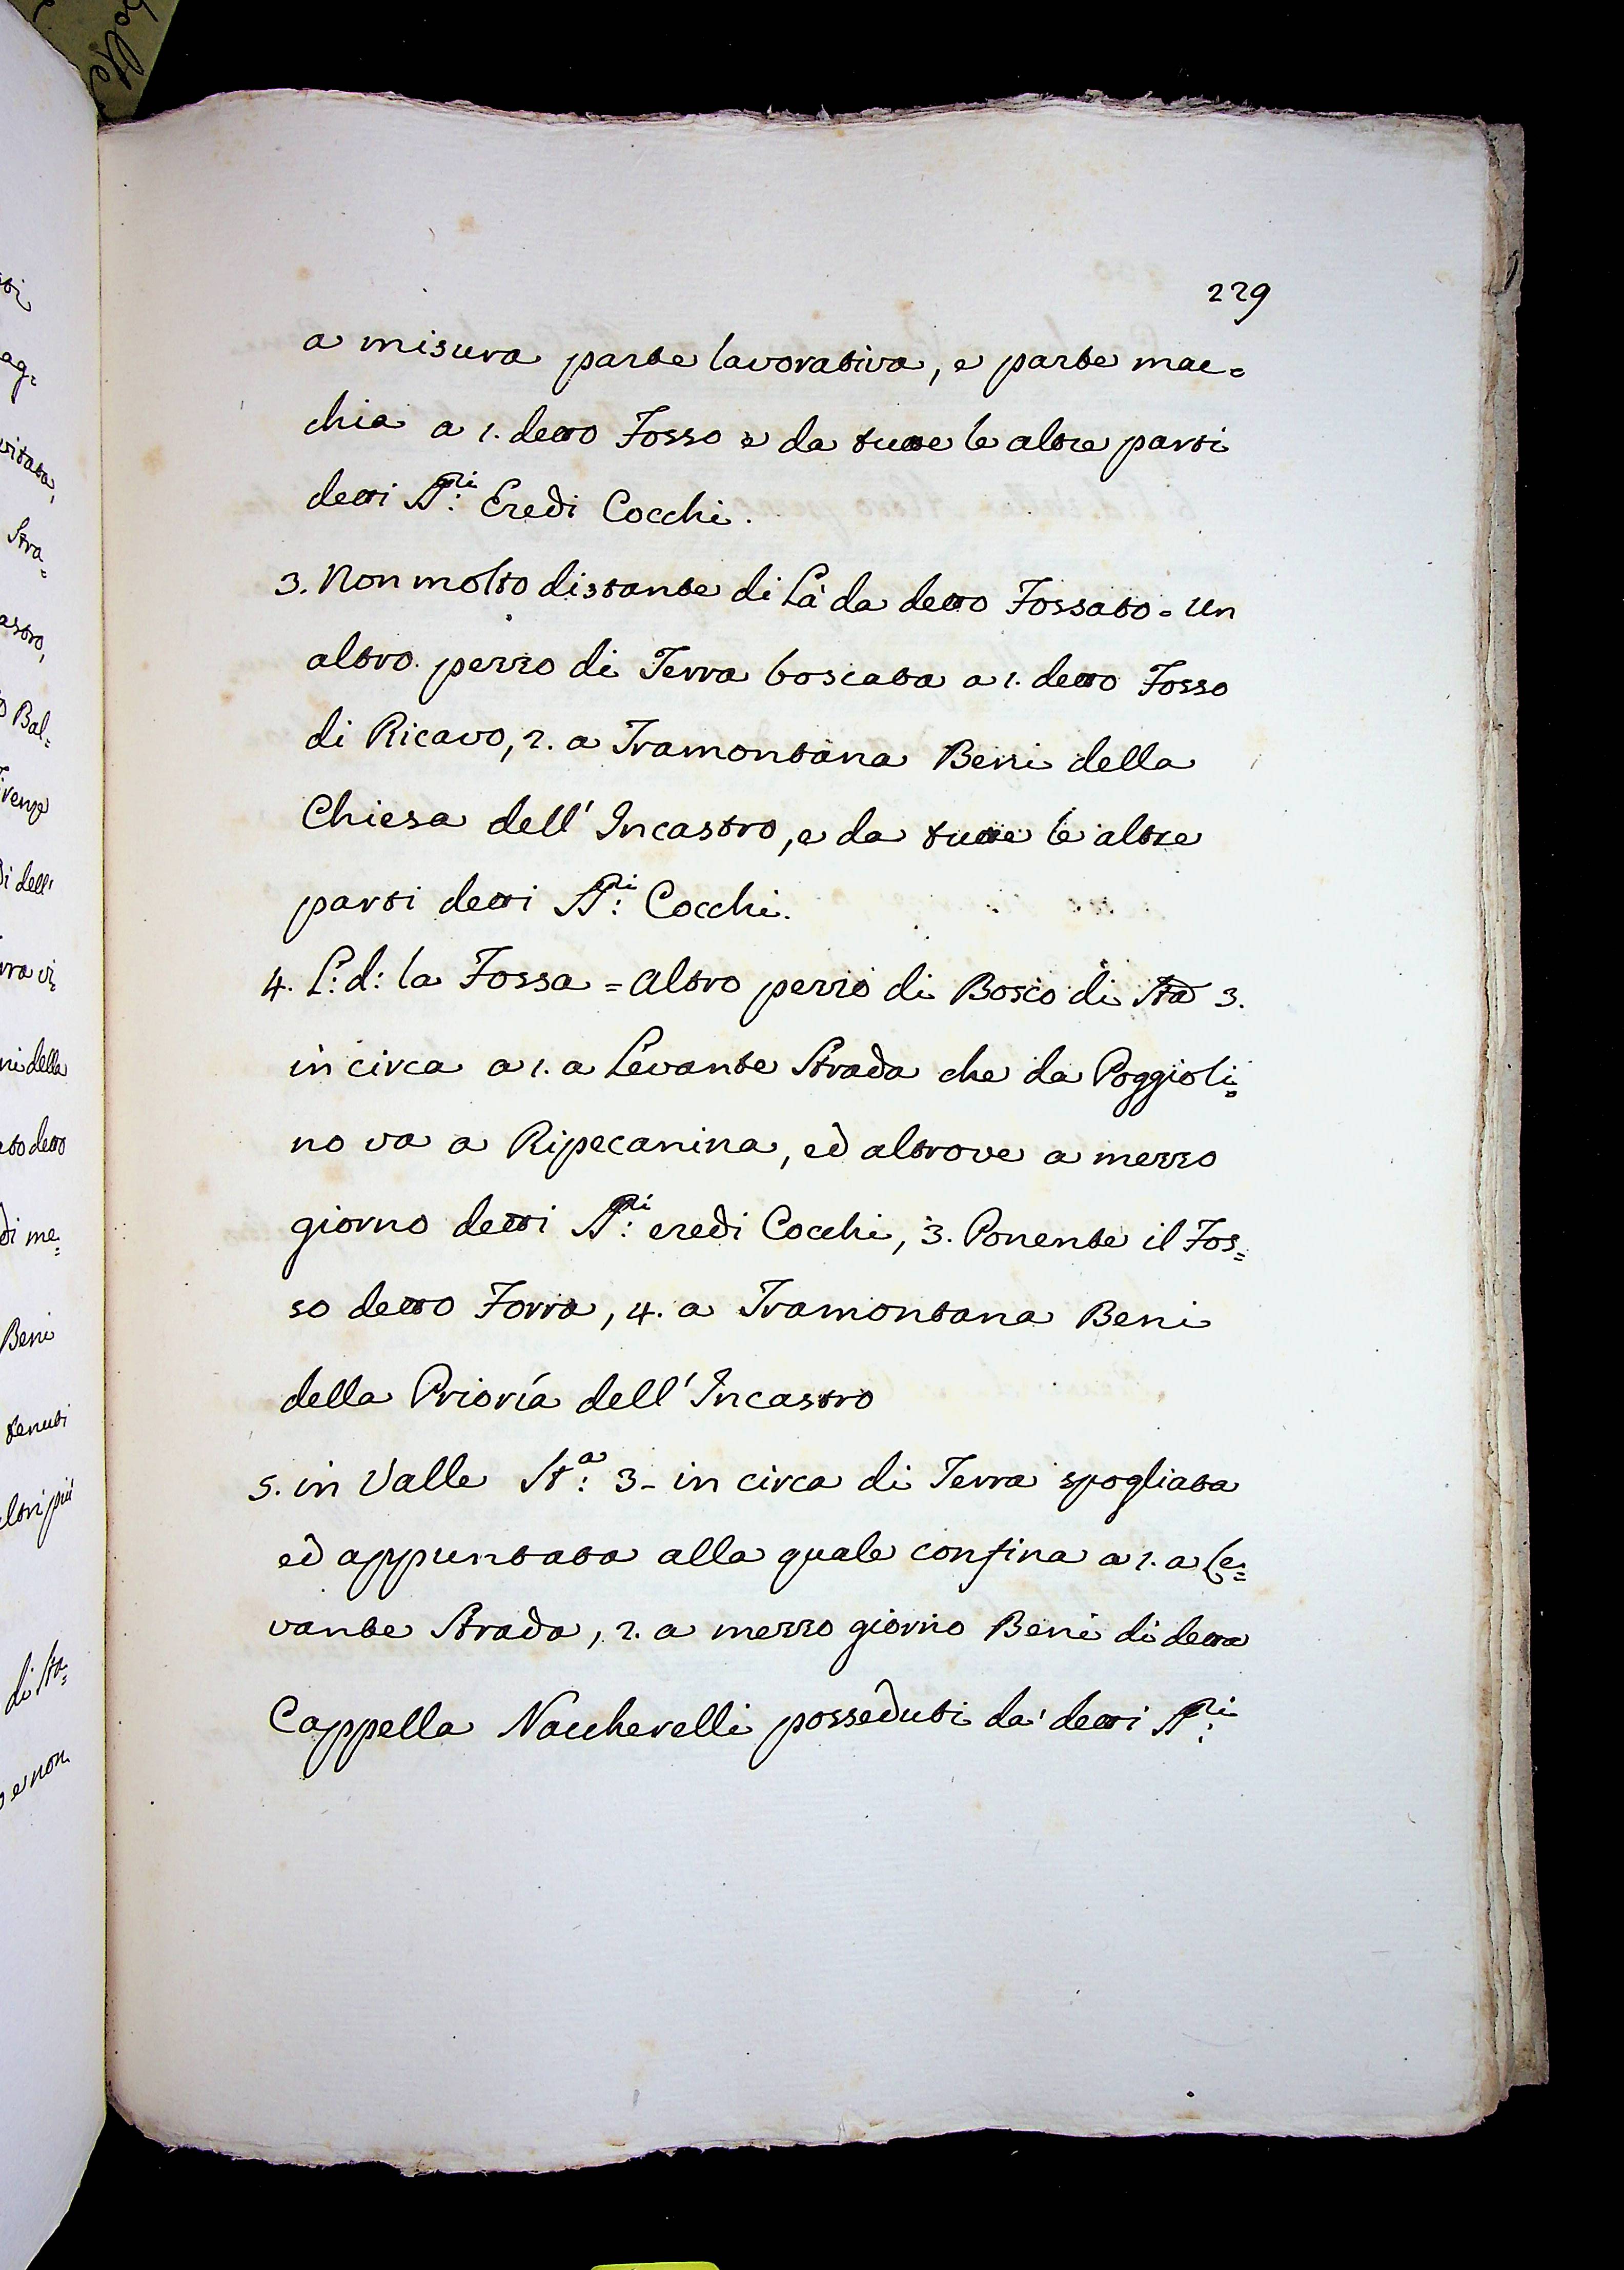 229
a misura parte lavorativa, e parte mac=
chia a 1. detto Fosso e da tutte le altre parti
detti SS.ri Eredi Cocchi.
3. Non molto distante di Là da detto Fossato = un
altro pezzo di Terra boscata a 1. detto Fosso
di Ricavo, 2. a Tramontana Beni della
Chiesa dell' Incastro, e da tutte le altre
parti detti SS.ri Cocchi.
4. L: d: la Fossa = altro pezzo di Bosco di Sta 3.
in circa a 1. a Levante Strada che da Poggioli=
no va a Ripecanina, ed altrove a mezzo
giorno detti SS.ri eredi Cocchi, 3. Ponente il Fos=
so detto Forra, 4. a Tramontana Beni
della Prioría dell' Incastro
5. in Valle St.a 3 - in circa di Terra spogliata
ed appuntata alla quale confina a 1. a Le=
vante Strada, 2. a mezzo giorno Beni di detta
Cappella Naccherelli posseduti da' detti SS.ri